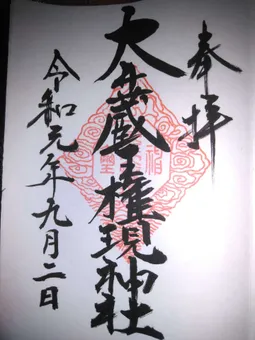 奉拝
大蔵王権現神社
令和元年九月二日